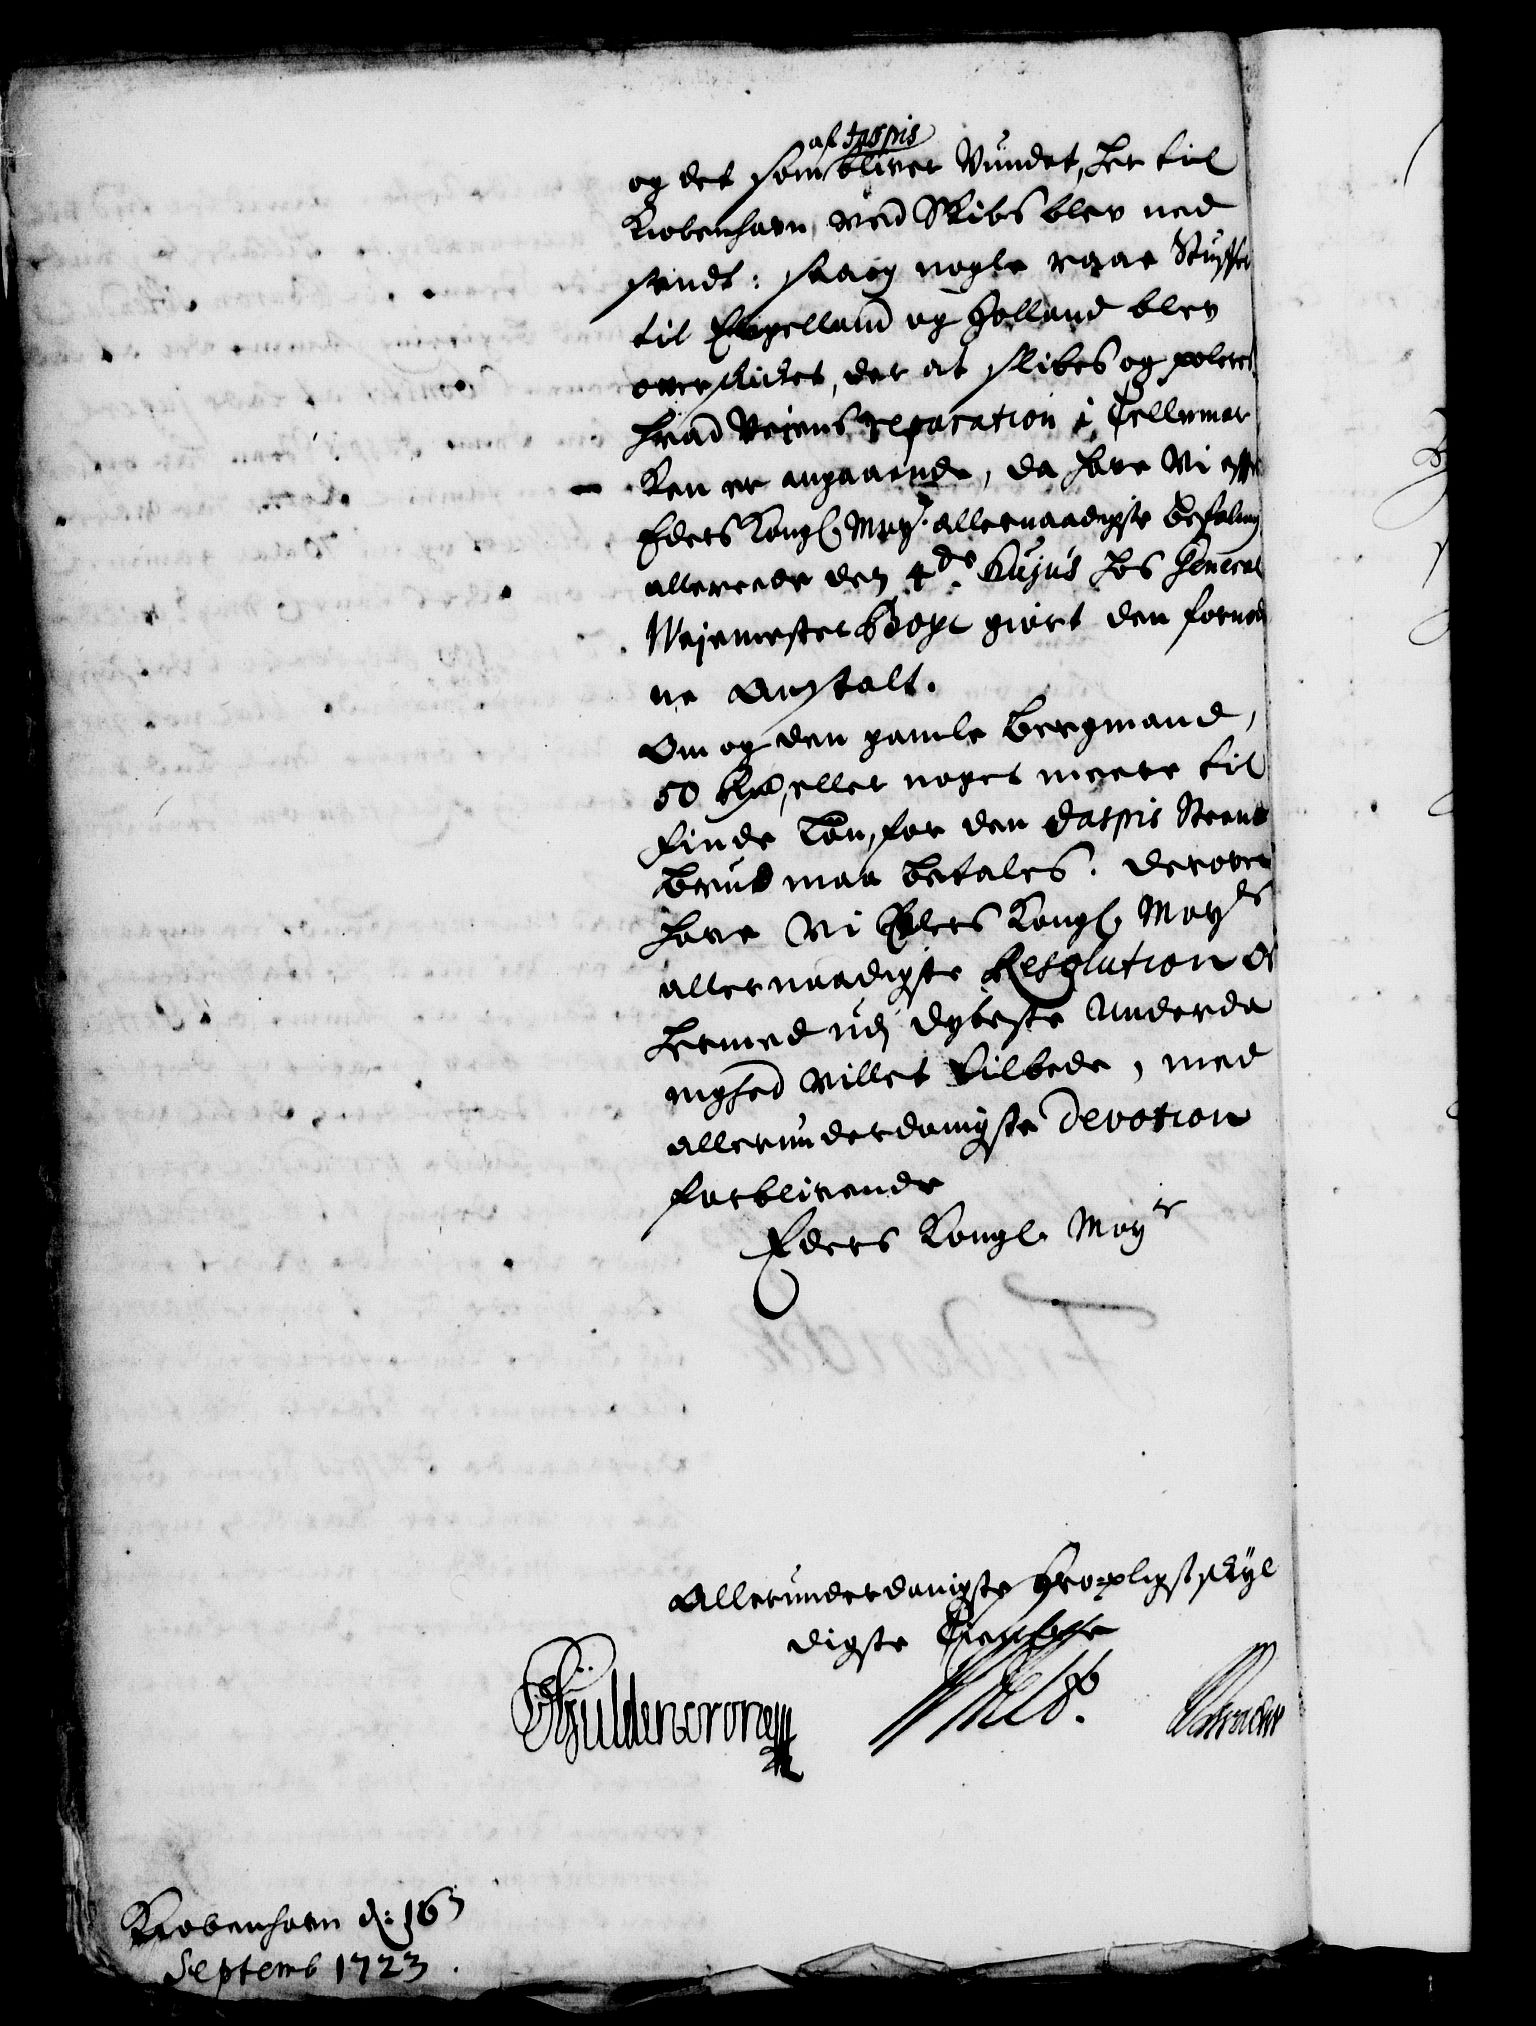 af Jaspis
og det som bliver Vundet, her til
Kiøbenhavn, med Skibs blev ned
sendt: saa og nogle raae Stuffer
til Engelland og Holland blev
overskichet, der at slibes og poleres
hvad Vejens reparation i Tellemar
ken er angaaende, da have Vi efter
Eders Kongl. May. allernaadigste befaling
allereede den 4de hujus hos General
Vejemester giort den fornød
ne Anstalt.
Om og den gamle Bergmand,
50 Rdr, eller noget meere til
finde Løn, for den Jaspis Steens
brud maa betales. derover
have Vi Eders Kongl. Mayts
allernaadigste Resolution
hermed udj dybeste Underda
nighed villet udbede, med
allerunderdanigste Devotion
forblivende
Eders Kongl. Mayts
Allerunderdanigste troepligtskyl
digste Tienere
Güldencrone
Kiøbenhavn d: 16
Septemb 1723.